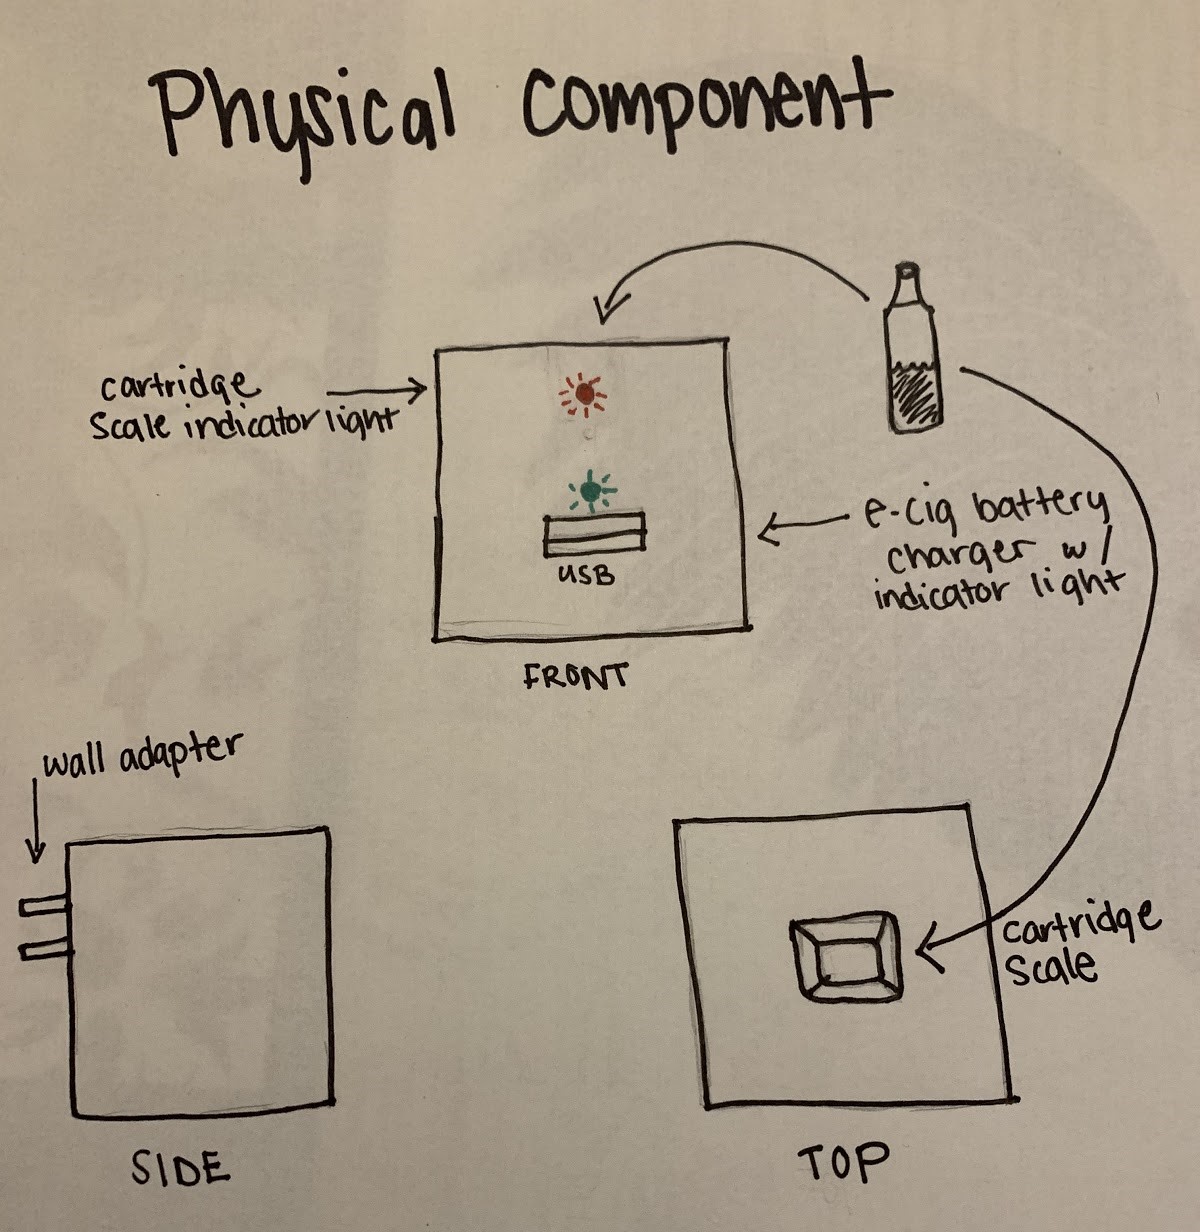 Physical component
cartridge
Scale indicator light
e-cig battery
charger w/
indicator light
USB
FRONT
wall adapter
cartridge
Scale
SIDE
TOP